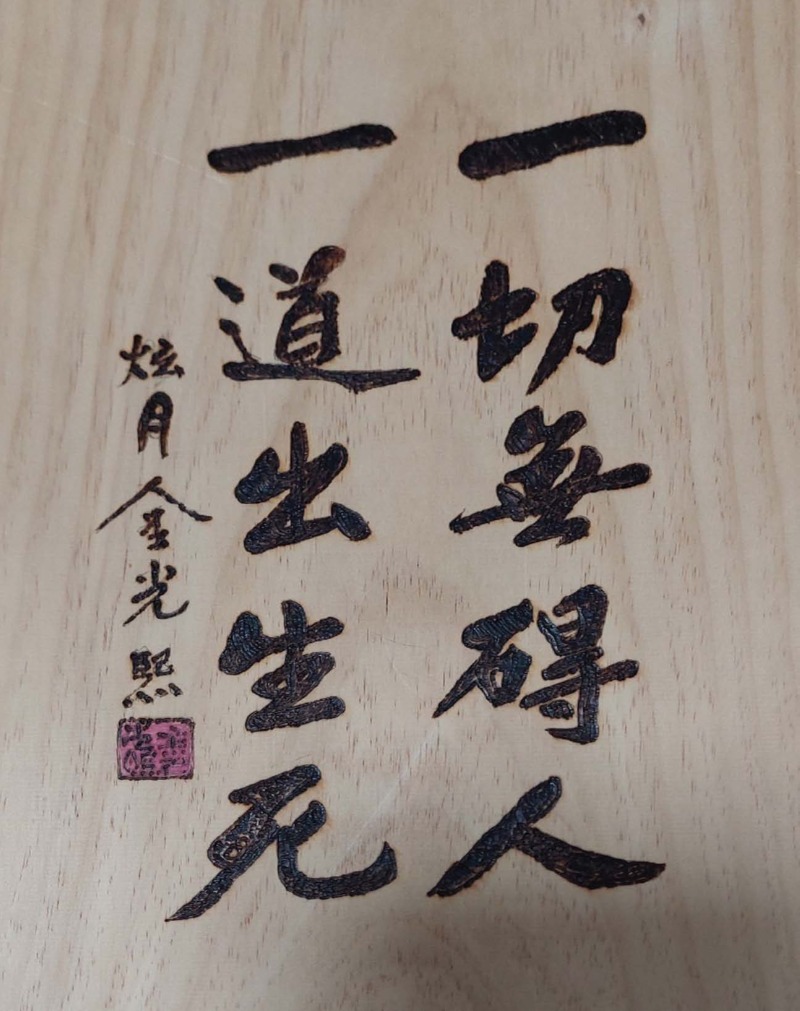 一切無碍人
一道出生死
炫月金光熙